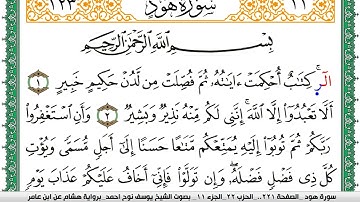 ١٢٣ سُورَةُ هُودٍ ١١
بِسْمِ اللَّهِ الرَّحْمَٰنِ الرَّحِيمِ
الٓر كِتَٰبٌ أُحْكِمَتْ ءَايَٰتُهُۥ ثُمَّ فُصِّلَتْ مِن لَّدُنْ حَكِيمٍ خَبِيرٍ ١
أَلَّا تَعْبُدُوٓا۟ إِلَّا ٱللَّهَ إِنَّنِى لَكُم مِّنْهُ نَذِيرٌ وَبَشِيرٌ ٢ وَأَنِ ٱسْتَغْفِرُوا۟
رَبَّكُمْ ثُمَّ تُوبُوٓا۟ إِلَيْهِ يُمَتِّعْكُم مَّتَٰعًا حَسَنًا إِلَىٰٓ أَجَلٍ مُّسَمًّى وَيُؤْتِ
كُلَّ ذِى فَضْلٍ فَضْلَهُۥ وَإِن تَوَلَّوْا۟ فَإِنِّىٓ أَخَافُ عَلَيْكُمْ عَذَابَ يَوْمٍ
سورة هود _الصفحة ٢٢١.. الحزب ٢٢_ الجزء ١١ _ بصوت الشيخ يوسف نوح احمد_ برواية هشام عن ابن عامر